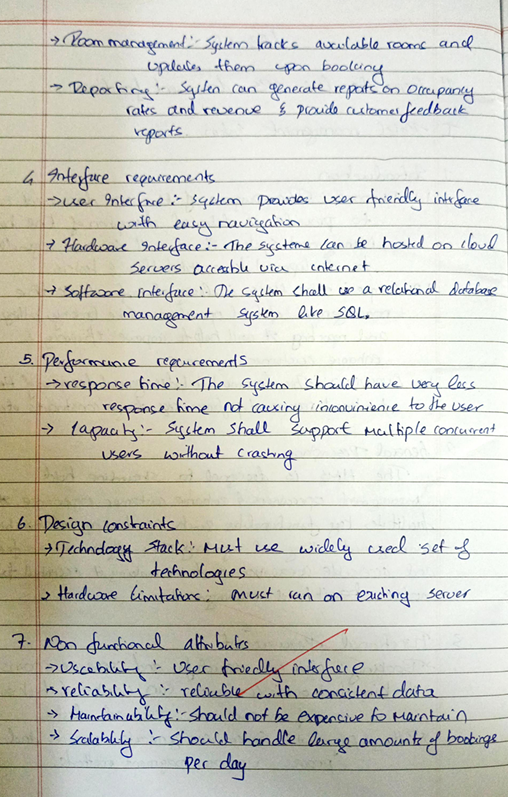 → Room management:- System tracks available rooms and
updates them upon booking
→ Reporting:- System can generate reports on occupancy
rates and revenue & provide customer feedback
reports
4 Interface requirements
→ user Interface :- System provides user friendly interface
with easy navigation
→ Hardware Interface:- The systeme can be hosted on cloud
servers accesable via internet
→ Software interface:- The system shall use a relational database
management system like SQL.
5. Performance requirements
→ response time:- The system should have very less
response time not causing inconvinience to the user
→ Capacity:- System shall support multiple concurrent
users without crashing
6. Design constraints
→ Technology stack: Must use widely used set of
technologies
→ Hardware Limitations: Must run on existing server
7. Non functional attributes
→ Useability :- User friendly interface
→ reliability :- reliable with consistent data
→ Maintainability:- should not be expensive to maintain
→ Scalability :- should handle large amounts of bookings
per day